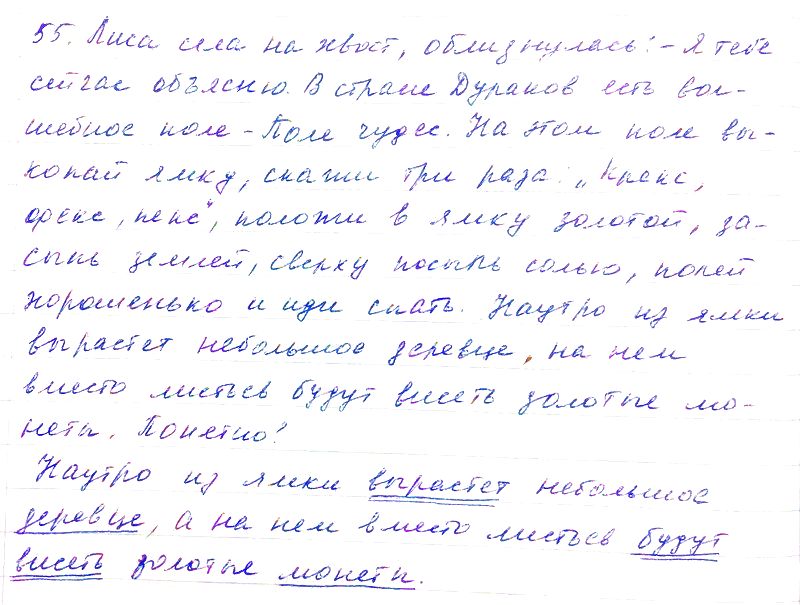 55. Лиса села на хвост, облизнулась: - Я тебе
сейчас объясню. В стране Дураков есть вол-
шебное поле - Поле чудес. На этом поле вы-
копай ямку, скажи три раза: „Крекс,
фекс, пекс", положи в ямку золотой, за-
сыпь землей, сверху посыпь солью, полей
хорошенько и иди спать. Наутро из ямки
вырастет небольшое деревце, на нем
вместо листьев будут висеть золотые мо-
неты. Понятно?
Наутро из ямки вырастет небольшое
деревце, а на нем вместо листьев будут
висеть золотые монеты.